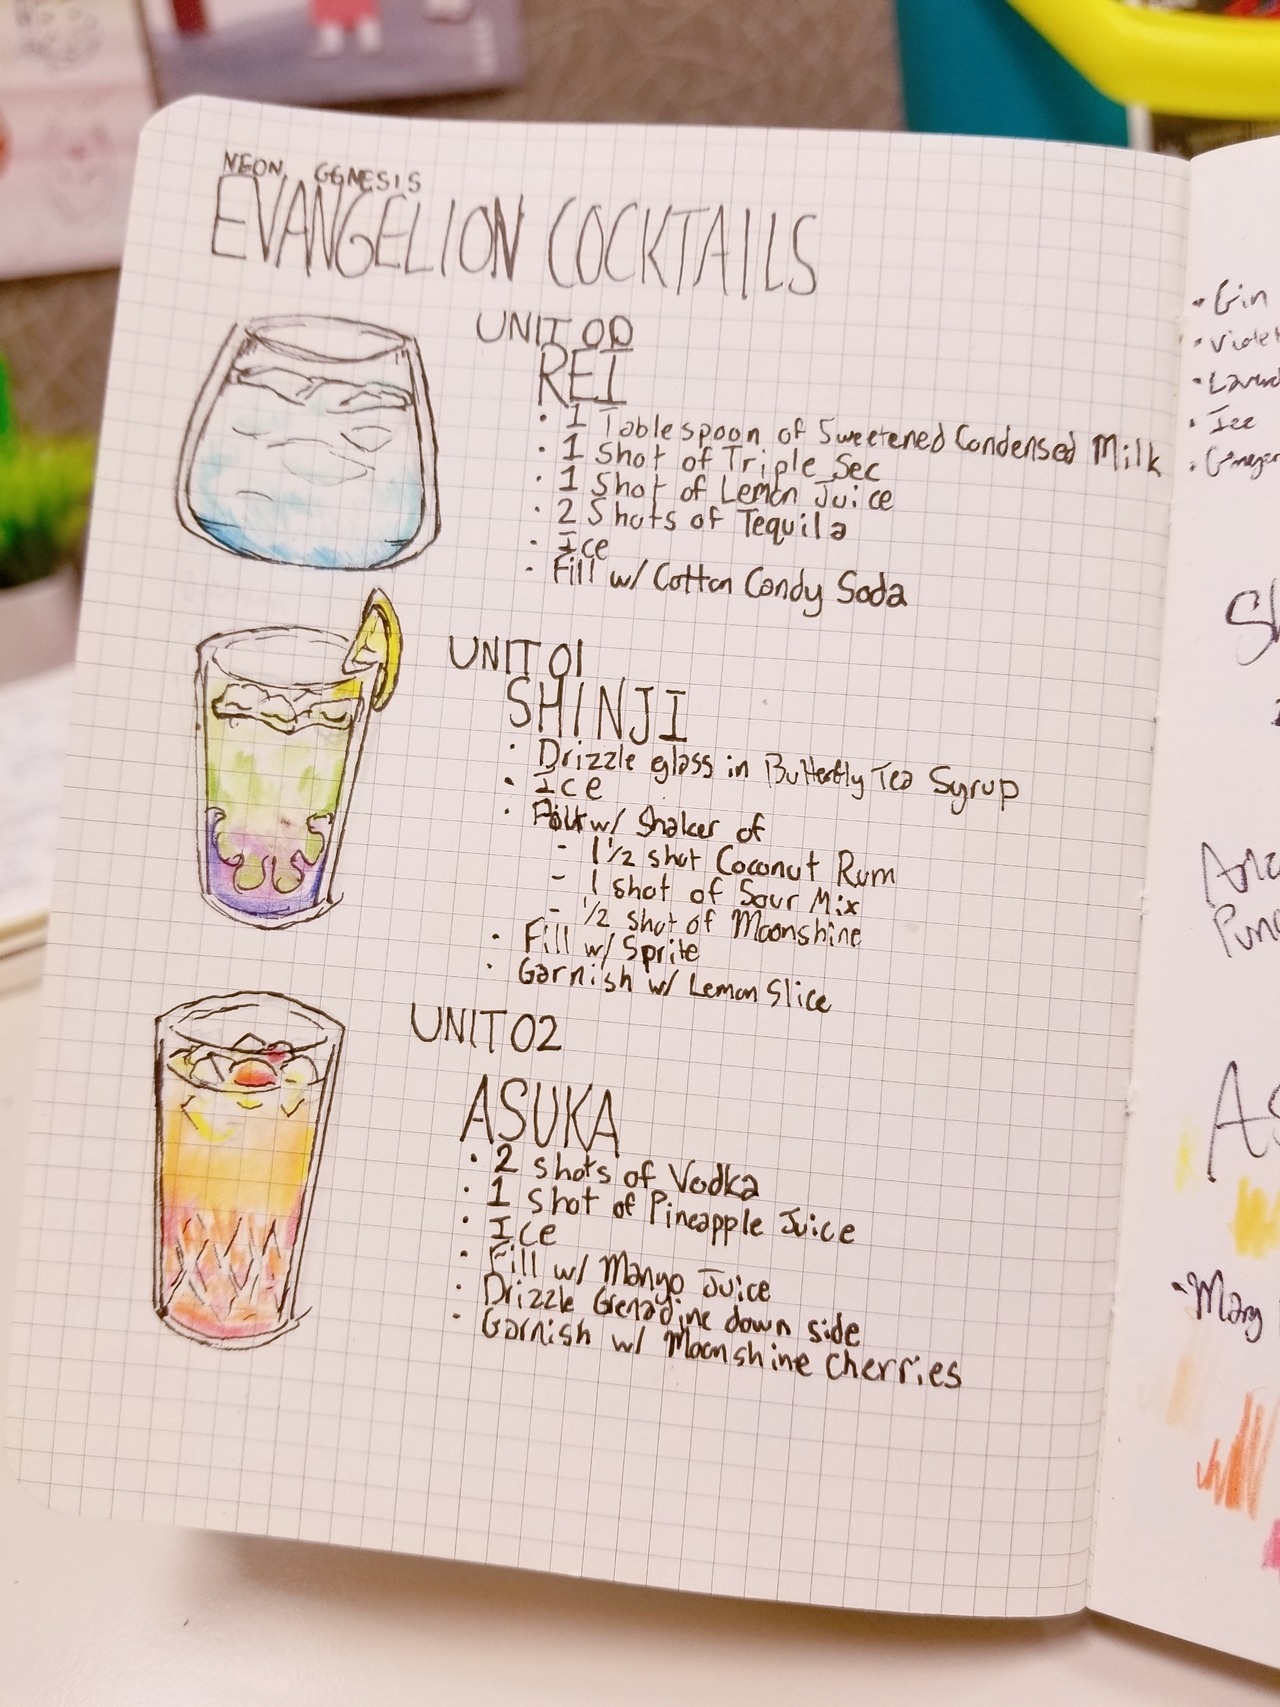 NEON GENESIS
EVANGELION COCKTAILS
UNIT 00
REI
· 1 Tablespoon of Sweetened Condensed Milk
· 1 Shot of Triple Sec
· 1 Shot of Lemon Juice
· 2 Shots of Tequila
· Ice
· Fill w/ Cotton Candy Soda
UNIT 01
SHINJI
· Drizzle glass in Butterfly Tea Syrup
· Ice
· w/ Shaker of
- 1 1/2 shot Coconut Rum
- 1 shot of Sour Mix
- 1/2 shot of Moonshine
· Fill w/ Sprite
· Garnish w/ Lemon Slice
UNIT 02
ASUKA
· 2 shots of Vodka
· 1 shot of Pineapple Juice
· Ice
· Fill w/ Mango Juice
· Drizzle Grenadine down side
· Garnish w/ Moonshine Cherries
· Gin
· Ice